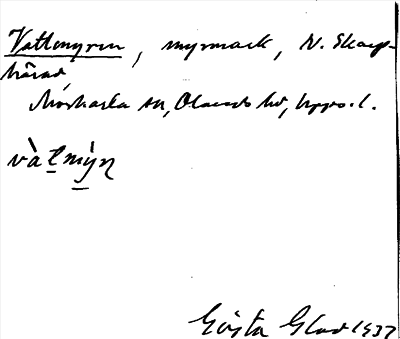 Vattmyren, myrmark, N. Skarp-
hårad
Morkarla sn, Olands hd, Upps. l.
và t mýn
Gösta Glad 1937